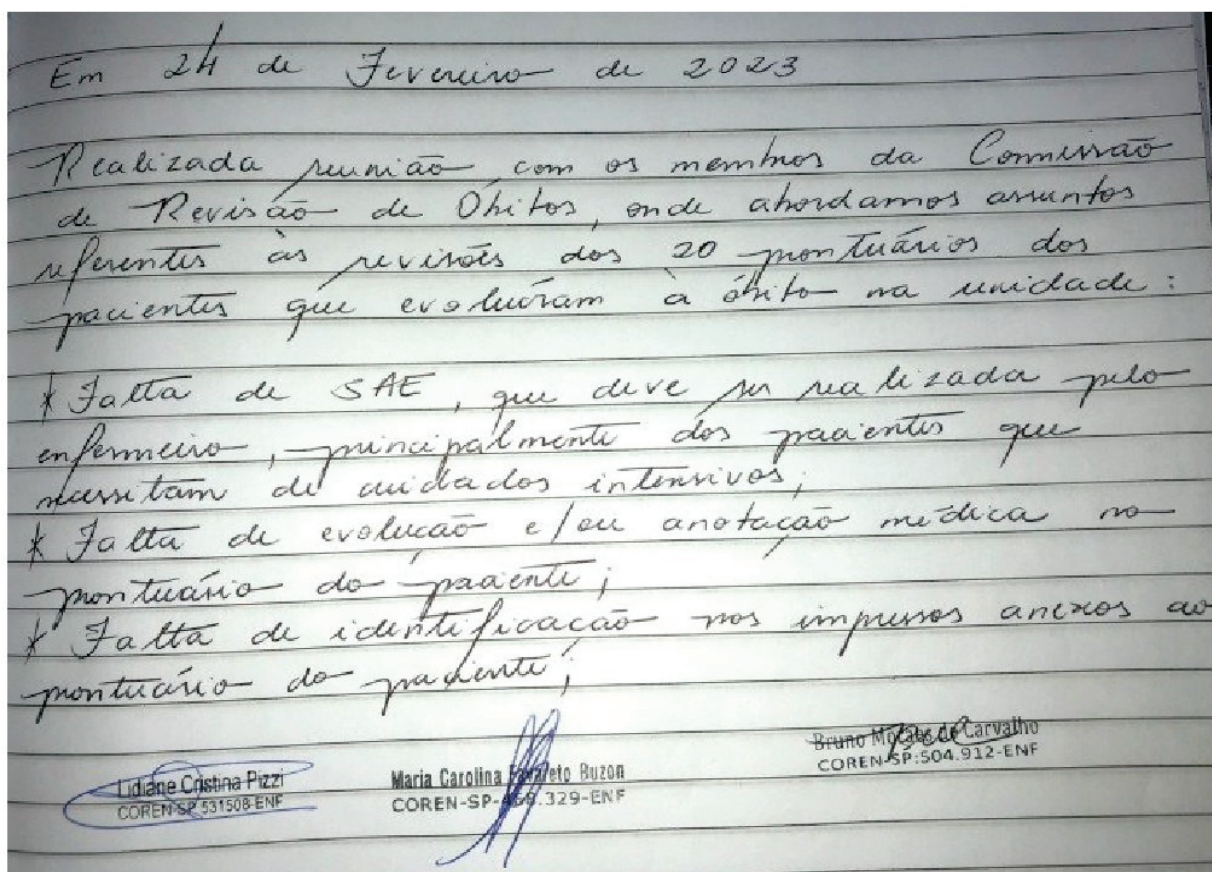 Em 24 de Fevereiro de 2023
Realizada reunião com os membros da Comissão
de Revisão de Óbitos, onde abordamos assuntos
referentes às revisões dos 20 prontuários dos
pacientes que evoluíram à óbito na unidade:
* Falta de SAE, que deve ser realizada pelo
enfermeiro, principalmente dos pacientes que
necessitam de cuidados intensivos;
* Falta de evolução e/ou anotação médica no
prontuário do paciente;
* Falta de identificação nos impressos anexos ao
prontuário do paciente;
Bruno Moraes de Carvalho
COREN-SP:504.912-ENF
Lidiane Cristina Pizzi
COREN-SP 531508-ENF
Maria Carolina Buzon
COREN-SP- .329-ENF